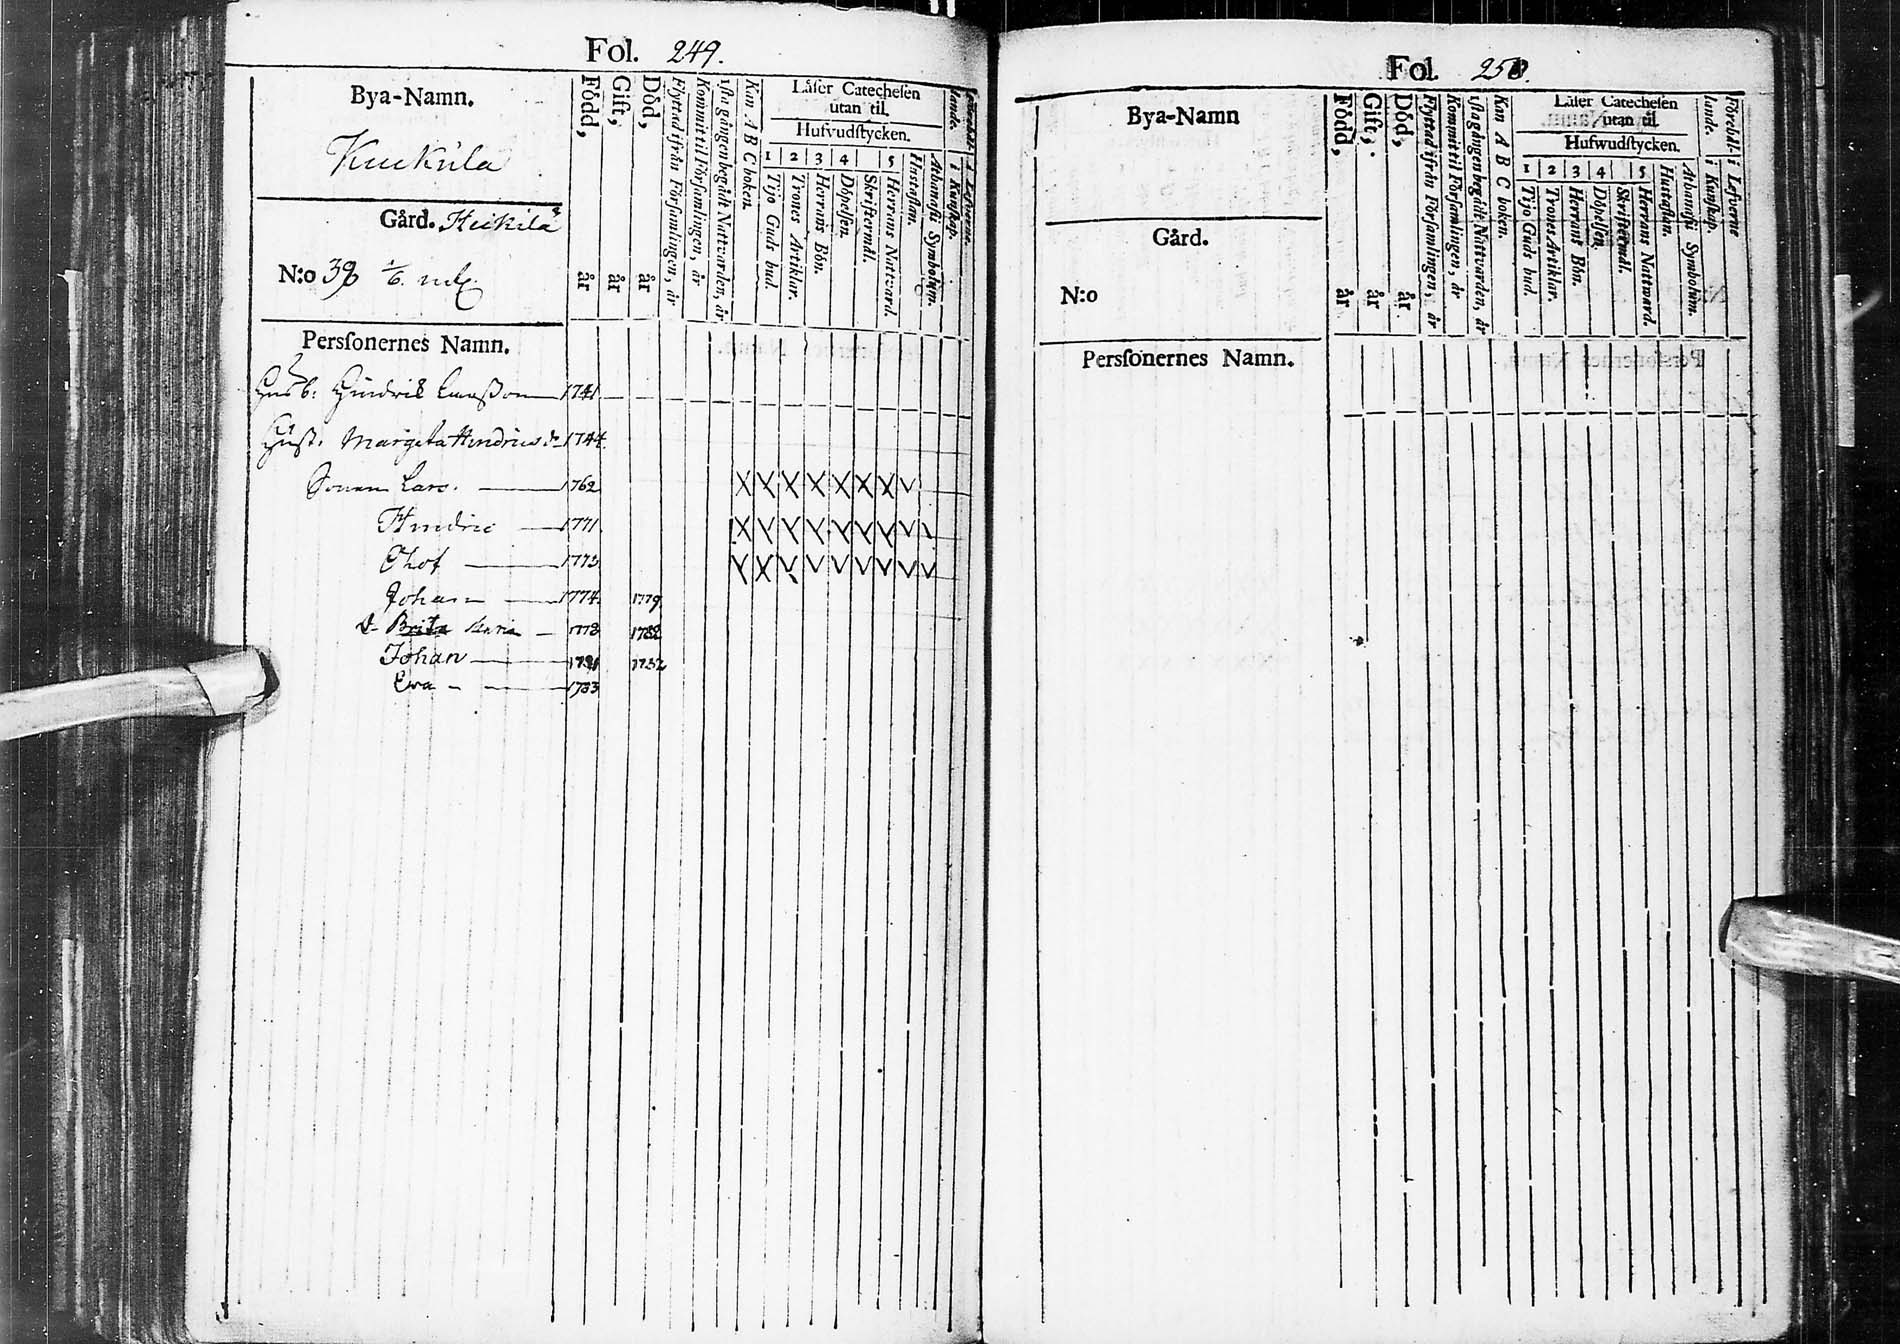 Fol. 249.
Bya-Namn.
Kuckula
Gård. Heikilä
N:o 39 1/6 mtl.
Född, år
Gift, år
Död, år
Flyttad ifrån Församlingen, år
Kommit til Församlingen, år
1sta gången begådt Nattvarden, år
Kan A B C boken.
Läser Catechesen
utan til.
Hufvudstycken.
1 2 3 4 5
Tijo Guds bud.
Trones Artiklar.
Herrans Bön.
Döpelsen.
Skriftermål.
Herrans Nattvard.
Hustaflan.
Athanasii Symbolum.
i Kunskap.
i Lefverne.
Persfonernes Namn.
Husb: Hindrik Larsson 1741
Hust. Margeta Hindricsdr 1744
Sonen Lars. 1762 X X X X X X X V
Hindric 1771
Olof 1773
Johan 1774 1779
dr Brita Maria 1778 1782
Johan 1781 1782
Ewa 1783
Fol. 250.
Bya-Namn
Gård.
N:o
Född, år
Gift, år
Död, år
Flyttad ifrån Församlingen, år
Kommit til Församlingen, år
1sta gången begådt Nattvarden, år
Kan A B C boken.
Läser Catechesen
utan til.
Hufwudstycken.
1 2 3 4 5
Tijo Guds bud.
Trones Artiklar.
Herrans Bön.
Döpelsen,
Skriftermål.
Herrans Nattward.
Hustaflan.
Athanasii Symbolum.
Förehållande.
i Kunskap.
i Lefverne
Persfonernes Namn.